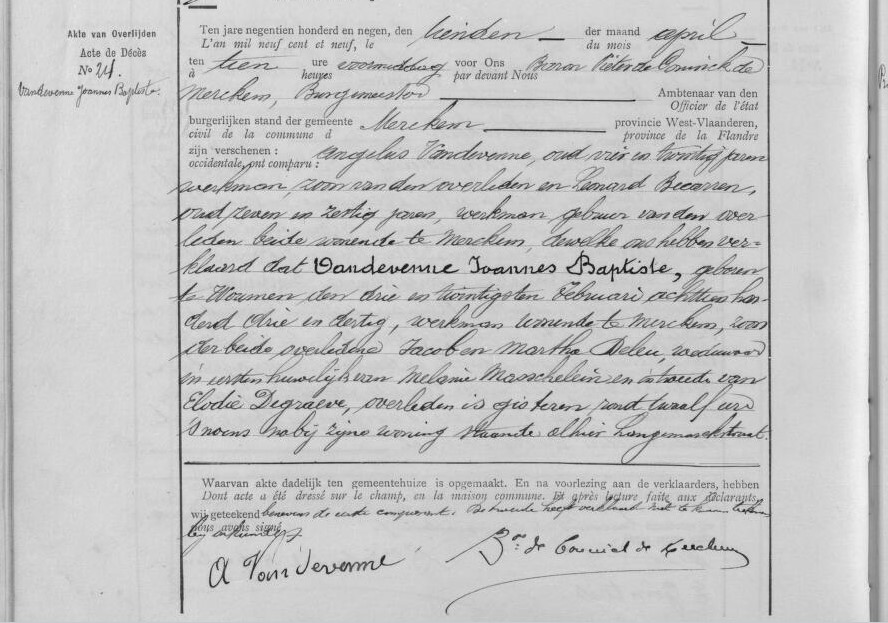 Akte van Overlijden
Acte de Décès
No 24.
Vandevenne Joannes Baptiste.
Ten jare negentien honderd en negen, den tienden der maand april
L'an mil neuf cent et neuf, le du mois
ten tien ure voormiddag voor Ons Baron Pieter de Coninck de
à heures par devant Nous
Merckem, Burgemeester Ambtenaar van den
Officier de l'état
burgerlijken stand der gemeente Merckem provincie West-Vlaanderen,
civil de la commune d province de la Flandre
zijn verschenen : Angelus Vandevenne, oud vier en twintig jaren
occidentale, ont comparu :
werkman, zoon van den overleden en Leonard Becarren,
oud zeven en zestig jaren, werkman gebuur van den over
leden beide wonende te Merckem, dewelke ons hebben ver=
klaard dat Vandevenne Joannes Baptiste, geboren
te Woumen den drie en twintigsten Februari achttien hon
derd drie en dertig, werkman wonende te Merckem, zoon
der beide overledene Jacob en Martha Deleu, weduwaar
in eersten huwelijk van Melanie Masschelein en in tweede van
Elodie Degraeve, overleden is gisteren rond twaalf ure
's noens nabij zijne woning staande alhier Langemarckstraat.
Waarvan akte dadelijk ten gemeentehuize is opgemaakt. En na voorlezing aan de verklaarders, hebben
Dont acte a été dressé sur le champ, en la maison commune. Et après lecture faite aux déclarants,
wij geteekend benevens de eerste comparant. De tweede heeft verklaard niet te kunnen
nous avons signé
A Vandevenne
Bon de Coninck de Merckem